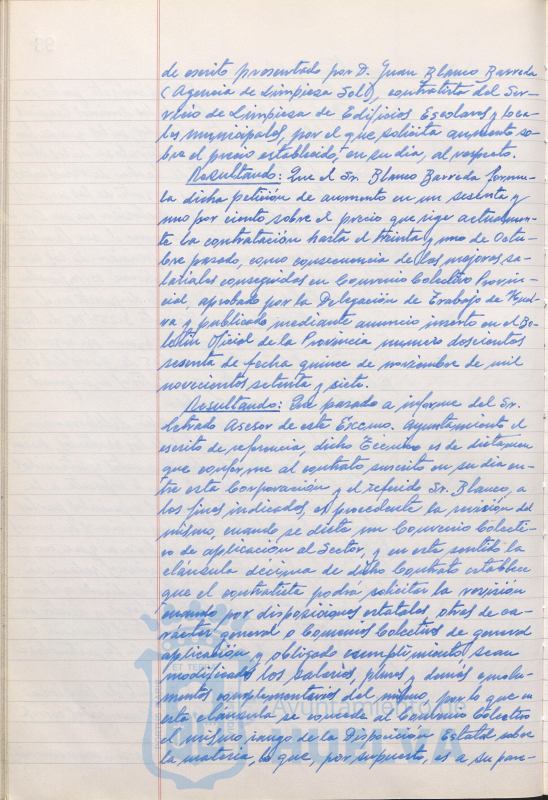 de escrito presentado por D. Juan Blanco Barreda
(Agencia de Limpieza Sol), contratista del Ser-
vicio de Limpieza de Edificios Escolares y Loca-
les municipales, por el que solicita aumento so-
bre el precio establecido, en su día, al respecto.
Resultando: Que el Sr. Blanco Barreda formu-
la dicha petición de aumento en un sesenta y
uno por ciento sobre el precio que rige actualmen-
te la contratación hasta el treinta y uno de Octu-
bre pasado, como consecuencia de las mejoras sa-
lariales conseguidas en Convenio Colectivo Provin-
cial, aprobado por la Delegación de Trabajo de Huel-
va y publicado mediante anuncio inserto en el Bo-
letín Oficial de la Provincia numero doscientos
sesenta de fecha quince de noviembre de mil
novecientos setenta y siete.
Resultando: Que pasado a informe del Sr.
Letrado Asesor de este Excmo. Ayuntamiento el
escrito de referencia, dicho Técnico es de dictamen
que conforme al contrato suscrito en su día en-
tre esta Corporación y el referido Sr. Blanco, a
los fines indicados, es procedente la revisión del
mismo, cuando se dicta un Convenio Colecti-
vo de aplicación al Sector, y en este sentido la
cláusula décima de dicho Contrato establece
que el contratista podrá solicitar la revisión
cuando por disposiciones estatales, otras de ca-
rácter general o Convenios Colectivos de general
aplicación y obligado cumplimiento, sean
modificados los salarios, pluses y demás emolu-
mentos complementarios del mismo, por lo que en
esta cláusula se concede al Convenio Colectivo
el mismo rango de la Disposición Estatal sobre
la materia, lo que, por supuesto, es a su pare-
Ayuntamiento de
HUELVA